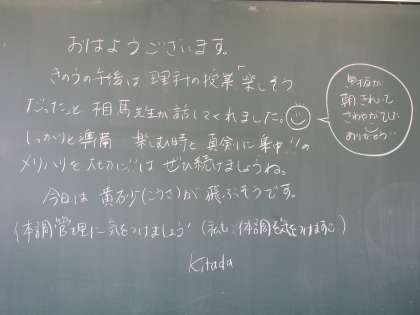 おはようございます。
きのうの午後は 理科の授業「楽しそう
だった」と 相馬先生が話してくれました。
しっかりと準備 楽しむ時と真剣に集中"の
メリハリを大切に"は ぜひ続けましょうね。
今日は 黄砂(こうさ)が 飛ぶそうです。
体調管理に気をつけましょう (私も 体調気をつけます)
Kitada
黒板が
朝きれいで
さわやかでした
ありがとう